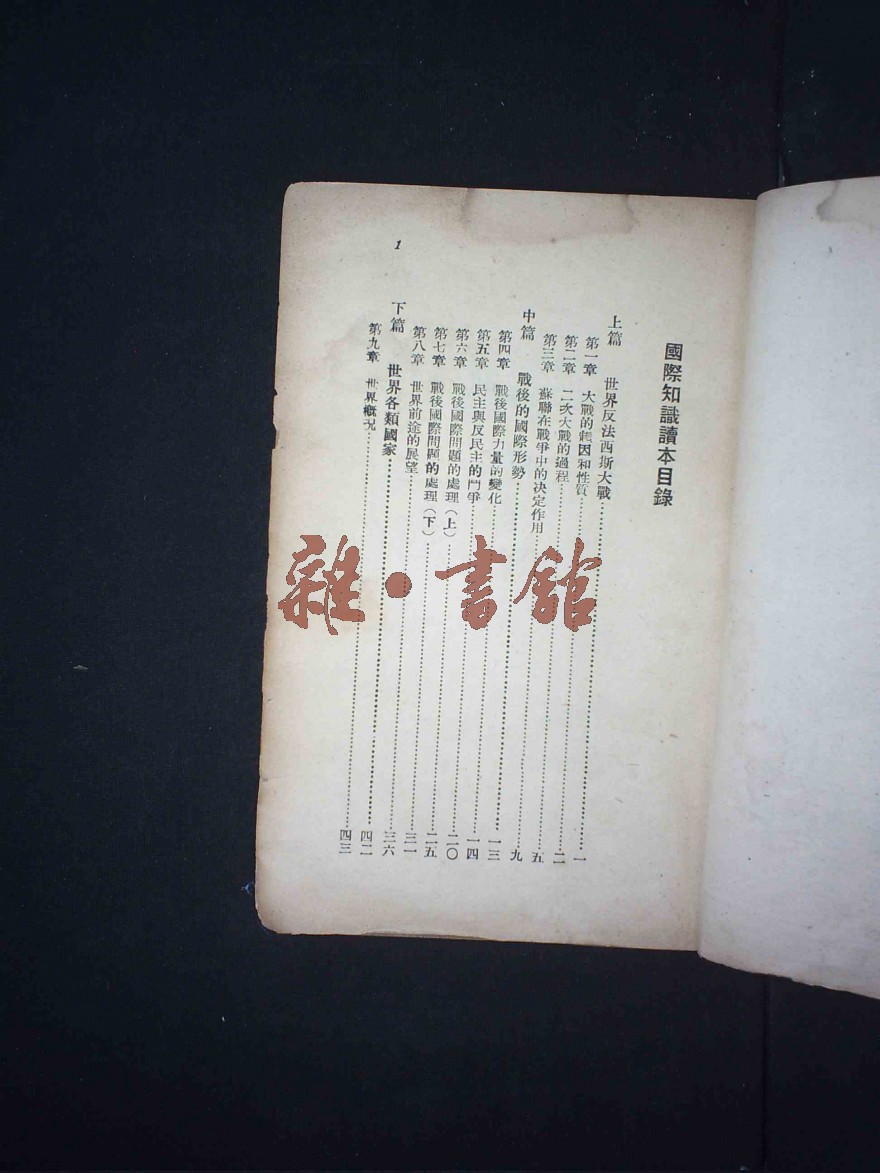 國際知識讀本目錄
上篇 世界反法西斯大戰……一
第一章 大戰的起因和性質……二
第二章 二次大戰的過程……五
第三章 蘇聯在戰爭中的决定作用……九
中篇 戰後的國際形勢……一三
第四章 戰後國際力量的變化……一四
第五章 民主與反民主的鬥爭……二〇
第六章 戰後國際問題的處理（上）……二五
第七章 戰後國際問題的處理（下）……三一
第八章 世界前途的展望……三六
下篇 世界各類國家……四二
第九章 世界概况……四三
1
雜·書館